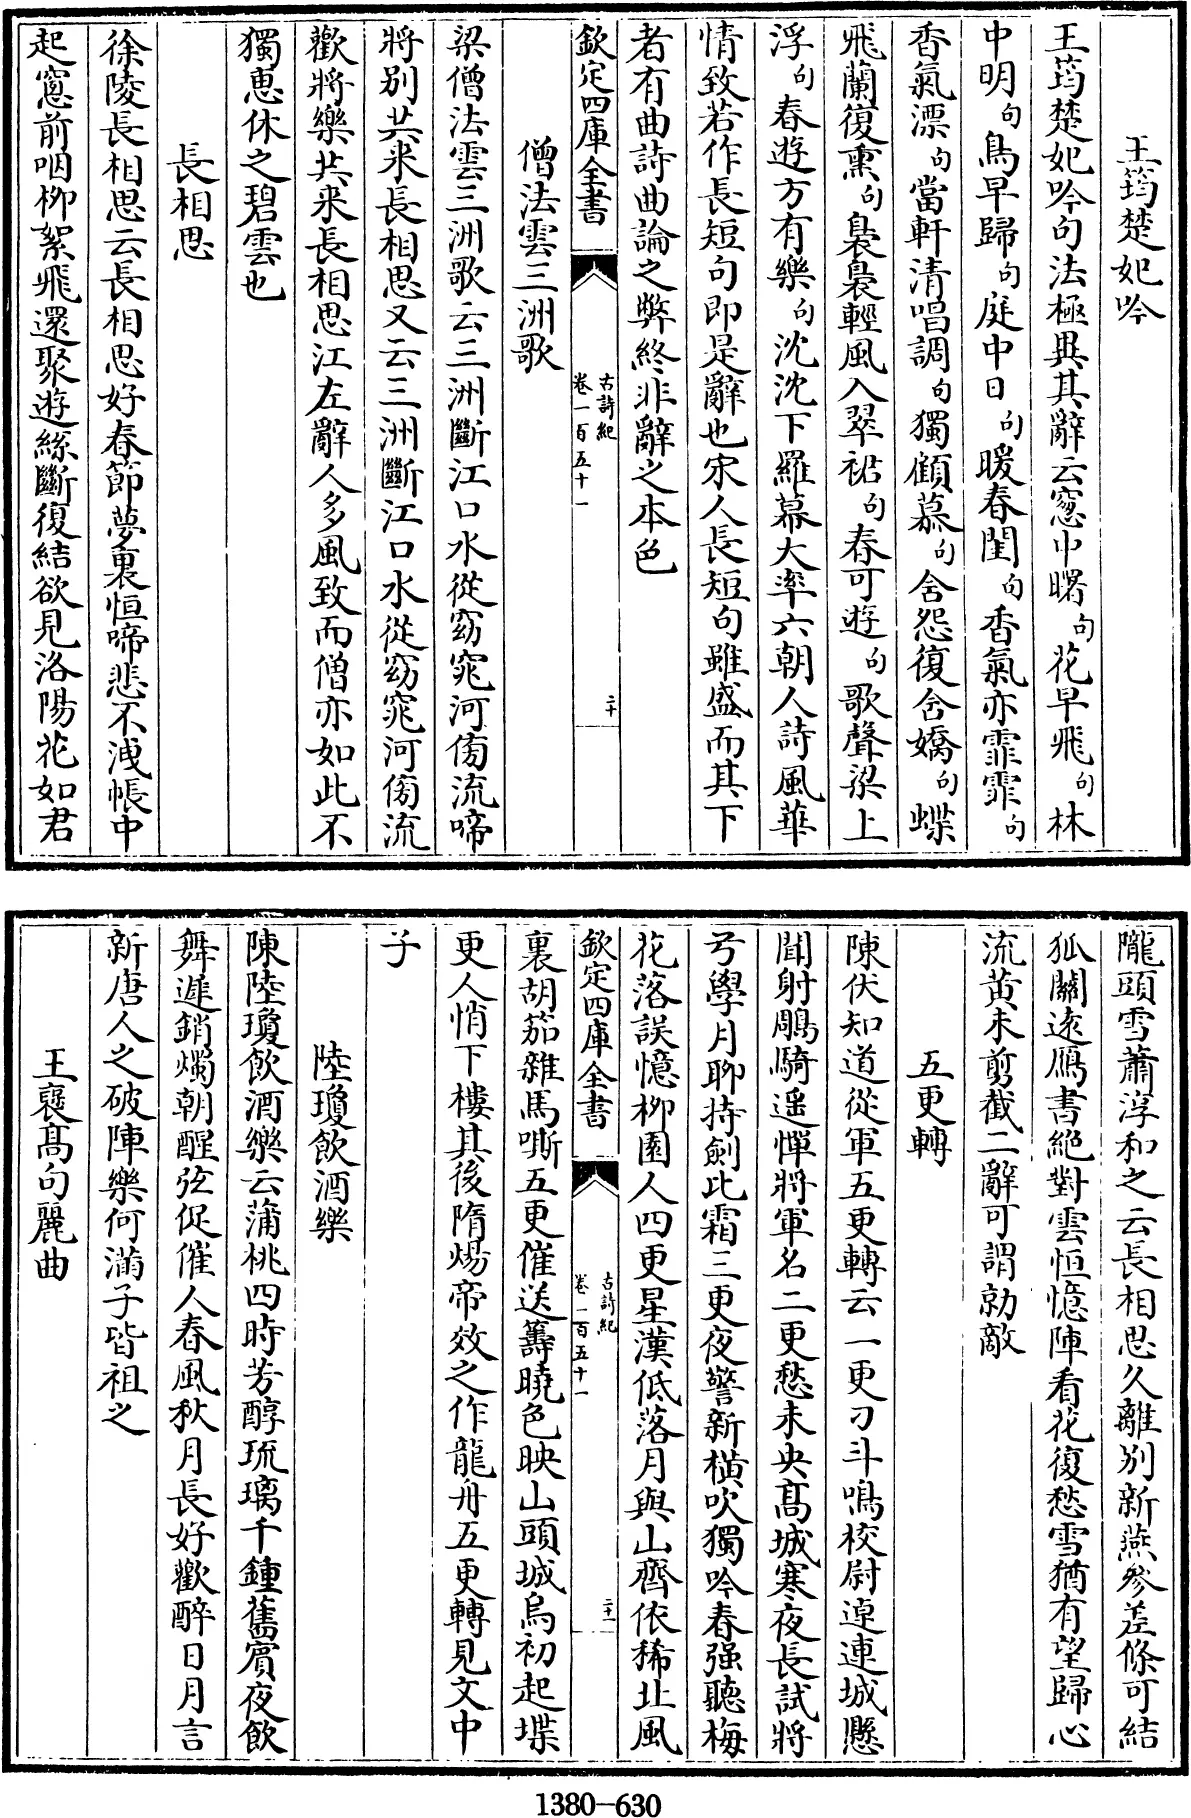 王筠楚妃吟
王筠楚妃吟句法極異其辭云窻中曙句花早飛句林
中明句鳥早歸句庭中日句暖春閨句香氣亦霏霏句
香氣漂句當軒清唱調句獨顧慕句含怨復含嬌句蝶
飛蘭復熏句裊裊輕風入翠裙句春可遊句歌聲梁上
浮句春遊方有樂句沈沈下羅幕大率六朝人詩風華
情致若作長短句即是辭也宋人長短句雖盛而其下
者有曲詩曲論之弊終非辭之本色
欽定四庫全書
古詩紀
卷一百五十一
二十
僧法雲三洲歌
梁僧法雲三洲歌云三洲斷江口水從窈窕河傍流啼
將别共来長相思又云三洲斷江口水從窈窕河傍流
歡將樂共来長相思江左辭人多風致而僧亦如此不
獨惠休之碧雲也
長相思
徐陵長相思云長相思好春節夢裏恒啼悲不洩帳中
起窻前咽柳絮飛還聚遊絲斷復結欲見洛陽花如君
隴頭雪蕭淳和之云長相思久離别新燕參差條可結
狐關遠鴈書絶對雲恒憶陣看花復愁雪猶有望歸心
流黄未剪截二辭可謂勍敵
五更轉
陳伏知道從軍五更轉云一更刁斗鳴校尉逴連城懸
聞射鵰騎遥憚將軍名二更愁未央髙城寒夜長試將
弓學月聊持劍比霜三更夜警新横吹獨吟春强聽梅
花落誤憶柳園人四更星漢低落月與山齊依稀北風
欽定四庫全書
古詩紀
卷一百五十一
二十一
裏胡笳雜馬嘶五更催送籌曉色映山頭城烏初起堞
更人悄下樓其後隋煬帝效之作龍舟五更轉見文中
子
陸瓊飲酒樂
陳陸瓊飲酒樂云蒲桃四時芳醇琉璃千鍾舊賓夜飲
舞遲銷燭朝醒弦促催人春風秋月長好歡醉日月言
新唐人之破陣樂何滿子皆祖之
王襃髙句麗曲
1380-630